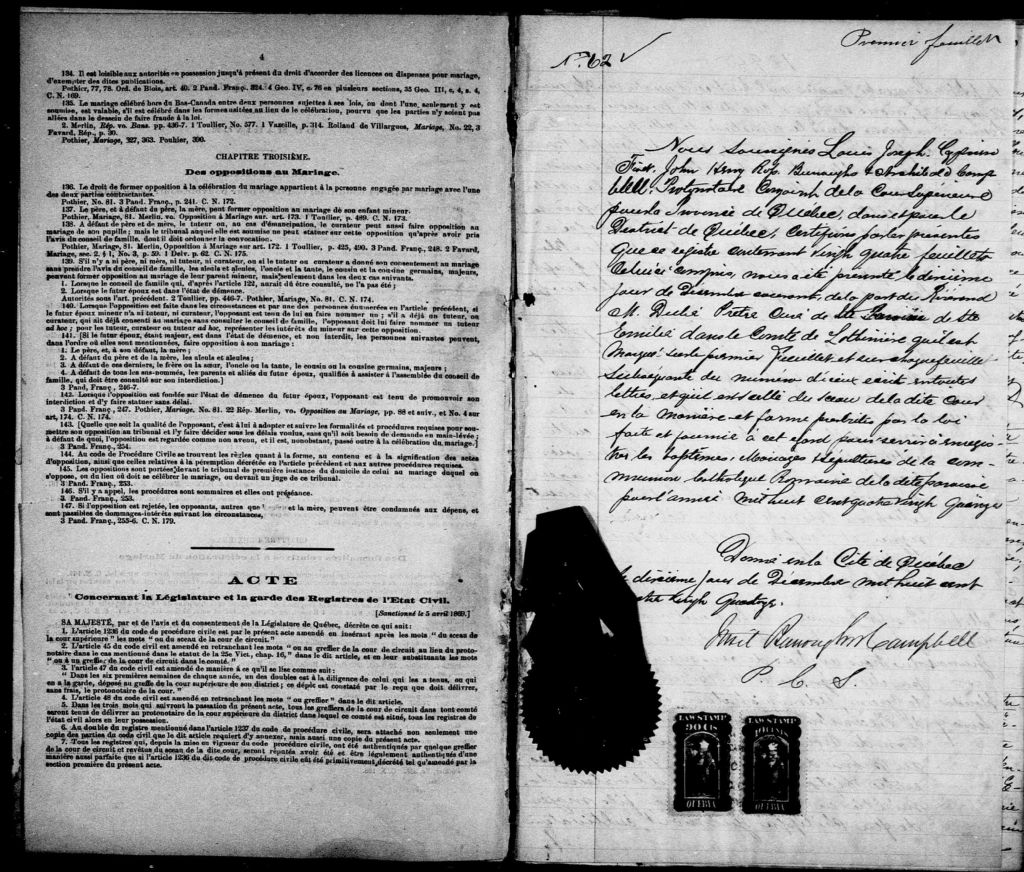 4
134. Il est loisible aux autorités en possession jusqu'à présent du droit d'accorder des licences ou dispenses pour mariage,
d'exempter des dites publications.
Pothier, 77, 78. Ord. de Blois, art. 40. 2 Pand. Franç., 324. 4 Geo. IV, c. 76 en plusieurs sections, 35 Geo. III, c. 4, s. 4,
C. N. 169.
135. Le mariage célébré hors du Bas-Canada entre deux personnes sujettes à ses lois, ou dont l'une seulement y est
soumise, est valable, s'il est célébré dans les formes usitées au lieu de la célébration, pourvu que les parties n'y soient pas
allées dans le dessein de faire fraude à la loi.
2. Merlin, Rép. vo. Bans. pp. 436-7. 1 Toullier, No. 577. 1 Vazeille, p. 314. Rolland de Villargues, Mariage, No. 22, 3
Favard, Rép., p. 30.
Pothier, Mariage, 327, 363. Poulier, 390.
CHAPITRE TROISIÈME.
Des oppositions au Mariage.
136. Le droit de former opposition à la célébration du mariage appartient à la personne engagée par mariage avec l'une
des deux parties contractantes.
Pothier, No. 81. 3 Pand. Franç., p. 241. C. N. 172.
137. Le père, et à défaut du père, la mère, peut former opposition au mariage de son enfant mineur.
Pothier, Mariage, 81. Merlin. vo. Opposition à Mariage sur. art. 173. 1 Toullier, p. 489. C. N. 173.
138. A défaut de père et de mère, le tuteur ou, au cas d'émancipation, le curateur peut aussi faire opposition au
mariage de son pupille; mais le tribunal auquel elle est soumise ne peut statuer sur cette opposition qu'après avoir pris
l'avis du conseil de famille, dont il doit ordonner la convocation.
Pothier, Mariage, 81. Merlin, Opposition à Mariage sur art. 172. 1 Toullier, p. 425, 490. 3 Pand. Franç., 248. 2 Favard,
Mariage, sec. 2. § 1, No. 3, p. 59. 1 Delv. p. 62. C. N. 175.
139. S'il n'y a ni père, ni mère, ni tuteur, ni curateur, ou si le tuteur ou curateur a donné son consentement au mariage
sans prendre l'avis du conseil de famille, les aïeuls et aïeules, l'oncle et la tante, le cousin et la cousine germains, majeurs,
peuvent former opposition au mariage de leur parent mineur, mais seulement dans les deux cas suivants.
1. Lorsque le conseil de famille qui, d'après l'article 122, aurait dû être consulté, ne l'a pas été ;
2. Lorsque le futur époux est dans l'état de démence.
Autorités sous l'art. précédent. 2 Toullier, pp. 446-7. Pothier, Mariage, No. 81. C. N. 174.
140. Lorsque l'opposition est faite dans les circonstances et par une des personnes énumérées en l'article précédent, si
le futur époux mineur n'a ni tuteur, ni curateur, l'opposant est tenu de lui en faire nommer un ; s'il a déjà un tuteur, ou
curateur, qui ait déjà consenti au mariage sans consulter le conseil de famille, l'opposant doit lui faire nommer un tuteur
ad hoc ; pour les tuteur, curateur ou tuteur ad hoc, représenter les intérêts du mineur sur cette opposition.
141. [Si le futur époux, étant majeur, est dans l'état de démence, et non interdit, les personnes suivantes peuvent,
dans l'ordre où elles sont mentionnées, faire opposition à son mariage :
1. Le père, et, à son défaut, la mère ;
2. A défaut du père et de la mère, les aïeuls et aïeules ;
3. A défaut de ces derniers, le frère ou la sœur, l'oncle ou la tante, le cousin ou la cousine germains, majeurs ;
4. A défaut de tous les sus-nommés, les parents et alliés du futur époux, qualifiés à assister à l'assemblée du conseil de
famille, qui doit être consulté sur son interdiction.]
3 Pand. Franç., 246-7.
142. Lorsque l'opposition est fondée sur l'état de démence du futur époux, l'opposant est tenu de promouvoir son
interdiction et d'y faire statuer sans délai.
3 Pand. Franç., 247. Pothier, Mariage. No. 81. 22 Rép. Merlin, vo. Opposition au Mariage, pp. 88 et suiv., et No. 4 sur
art. 174. C. N. 174.
143. [Quelle que soit la qualité de l'opposant, c'est à lui à adopter et suivre les formalités et procédures requises pour sou-
mettre son opposition au tribunal et l'y faire décider sous les délais voulus, sans qu'il soit besoin de demande en main-levée ;
à défaut de quoi, l'opposition est regardée comme non avenue, et il est, nonobstant, passé outre à la célébration du mariage.]
3 Pand. Franç., 254.
144. Au code de Procédure Civile se trouvent les règles quant à la forme, au contenu et à la signification des actes
d'opposition, ainsi que celles relatives à la péremption décrétée en l'article précédent et aux autres procédures requises.
145. Les oppositions sont portées devant le tribunal de première instance du domicile de celui au mariage duquel on
s'oppose, ou du lieu où doit se célébrer le mariage, ou devant un juge de ce tribunal.
3 Pand. Franç., 253.
146. S'il y a appel, les procédures sont sommaires et elles ont préséance.
3 Pand. Franç., 253.
147. Si l'opposition est rejetée, les opposants, autres que et la mère, peuvent être condamnés aux dépens, et
sont passibles de dommages-intérêts suivant les circonstances,
3 Pand. Franç., 255-6. C. N. 179.
ACTE
Concernant la Législature et la garde des Registres de l'Etat Civil.
[Sanctionné le 5 avril 1869.]
SA MAJESTÉ, par et de l'avis et du consentement de la Législature de Québec, décrète ce qui suit:
1. L'article 1236 du code de procédure civile est par le présent acte amendé en insérant après les mots " du sceau de
la cour supérieure " les mots " ou du sceau de la cour de circuit."
2. L'article 45 du code civil est amendé en retranchant les mots " ou au greffier de la cour de circuit au lieu du proto-
notaire dans le cas mentionné dans le statut de la 25e Vict., chap. 16," dans le dit article, et en leur substituant les mots
" ou à un greffier de la cour de circuit dans le comté."
3. l'article 47 du code civil est amendé de manière à ce qu'il se lise comme suit:
" Dans les six premières semaines de chaque année, un des doubles est à la diligence de celui qui les a tenus, ou qui
en a la garde, déposé au greffe de la cour supérieure de son district ; ce dépôt est constaté par le reçu que doit délivrer,
sans frais, le protonotaire de la cour."
4. L'article 48 du code civil est amendé en retranchant les mots " ou greffier " dans le dit article.
5. Dans les trois mois qui suivront la passation du présent acte, tous les greffiers de la cour de circuit dans tout comté
seront tenus de délivrer au protonotaire de la cour supérieure du district dans lequel ce comté est situé, tous les registres de
l'état civil alors en leur possession.
6. Au double du registre mentionné dans l'article 1237 du code de procédure civile, sera attaché non seulement une
copie des parties du code civil que le dit article requiert d'y annexer, mais aussi une copie du présent acte.
7. Tous les registres qui, depuis la mise en vigueur du code procédure civile, ont été authentiqués par quelque greffier
de la cour de circuit et revêtus du sceau de la dite cour, seront réputés avoir été et être légalement authentiqués d'une
manière aussi parfaite que si l'article 1236 du dit code de procédure civile eût été primitivement décrété tel qu'amendé par la
section première du présent acte.
Premier feuillet
No. 62
Nous Soussignés Louis Joseph Cyprien
Fiset, John Henry Ross Burroughs & Archibald Camp
bell, Protonotaire Conjoint de la Cour Supérieure
pour la Province de Québec, dans et pour le
District de Québec, Certifions par les présentes
que ce registre contenant vingt quatre feuillets
celui-ci compris, nous a été présenté le dixième
jour de Décembre courant, de la part du Révérend
M. Prêtre Curé de Ste
Emilie dans le Comté de Lotbinière qu'il est
marqué sur le premier feuillet et sur chaque feuillet
subséquent du numéro d'iceux écrit en toutes
lettres, et qu'il est scellé du Sceau de la dite Cour
en la manière et forme prescrites par la loi
faite et fournie à cet égard pour servir à enregis
trer les baptêmes, Mariages & sépultures de la com-
munion Catholique Romaine de la dite paroisse
pour l'année mil huit cent quatre vingt quinze
Donné en la Cité de Québec
le dixième jour de Décembre mil huit cent
quatre vingt quatorze.
Fiset Burroughs & Campbell
P. C. S
LAW STAMP
90 CTS
QUEBEC
LAW STAMP
10 CENTS
QUEBEC